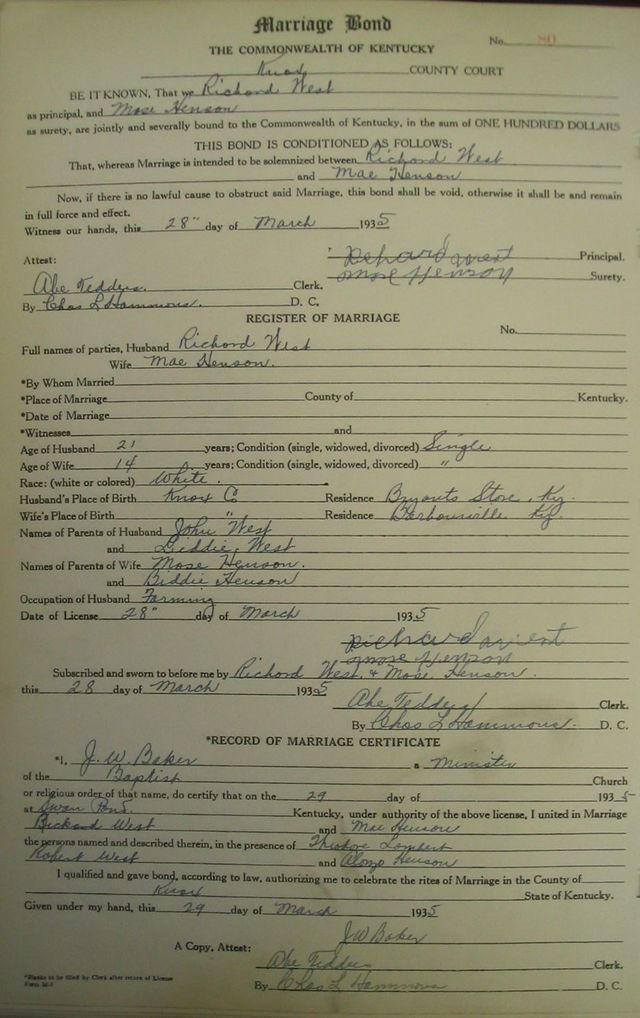 Marriage Bond
No. 80
THE COMMONWEALTH OF KENTUCKY
Knox COUNTY COURT
BE IT KNOWN, That we Richard West
as principal, and Mose Henson
as surety, are jointly and severally bound to the Commonwealth of Kentucky, in the sum of ONE HUNDRED DOLLARS
THIS BOND IS CONDITIONED AS FOLLOWS:
That, whereas Marriage is intended to be solemnized between Richard West
and Mae Henson
Now, if there is no lawful cause to obstruct said Marriage, this bond shall be void, otherwise it shall be and remain
in full force and effect.
Witness our hands, this 28" day of March 1935
Attest: Richard West Principal.
Mose Henson Surety.
Abe Tedders Clerk.
By Chas L Hammons. D. C.
REGISTER OF MARRIAGE
No.
Full names of parties, Husband Richard West
Wife Mae Henson.
*By Whom Married
*Place of Marriage County of Kentucky.
*Date of Marriage
*Witnesses and
Age of Husband 21 years; Condition (single, widowed, divorced) Single
Age of Wife 14 years; Condition (single, widowed, divorced) "
Race: (white or colored) White.
Husband's Place of Birth Knox C Residence Bryants Store, Ky.
Wife's Place of Birth " Residence Barbourville Ky.
Names of Parents of Husband John West
and Liddie West
Names of Parents of Wife Mose Henson.
and Biddie Henson
Occupation of Husband Farming
Date of License 28" day of March 1935
Richard West
Mose Henson
Subscribed and sworn to before me by Richard West & Mose Henson.
this 28 day of March 1935
Abe Tedders Clerk.
By Chas L Hammons. D. C.
*RECORD OF MARRIAGE CERTIFICATE
*I, J. W. Baker a Minister
of the Baptist Church
or religious order of that name, do certify that on the 29 day of 1935
at Swan Pond Kentucky, under authority of the above license, I united in Marriage
Richard West and Mae Henson
the persons named and described therein, in the presence of Theodore Lambert
Robert West and Alonzo Henson
I qualified and gave bond, according to law, authorizing me to celebrate the rites of Marriage in the County of
Knox State of Kentucky.
Given under my hand, this 29 day of March 1935
J W Baker
A Copy, Attest: Abe Tedders Clerk.
By Chas L Hammons D. C.
*Blanks to be filled by Clerk after return of License